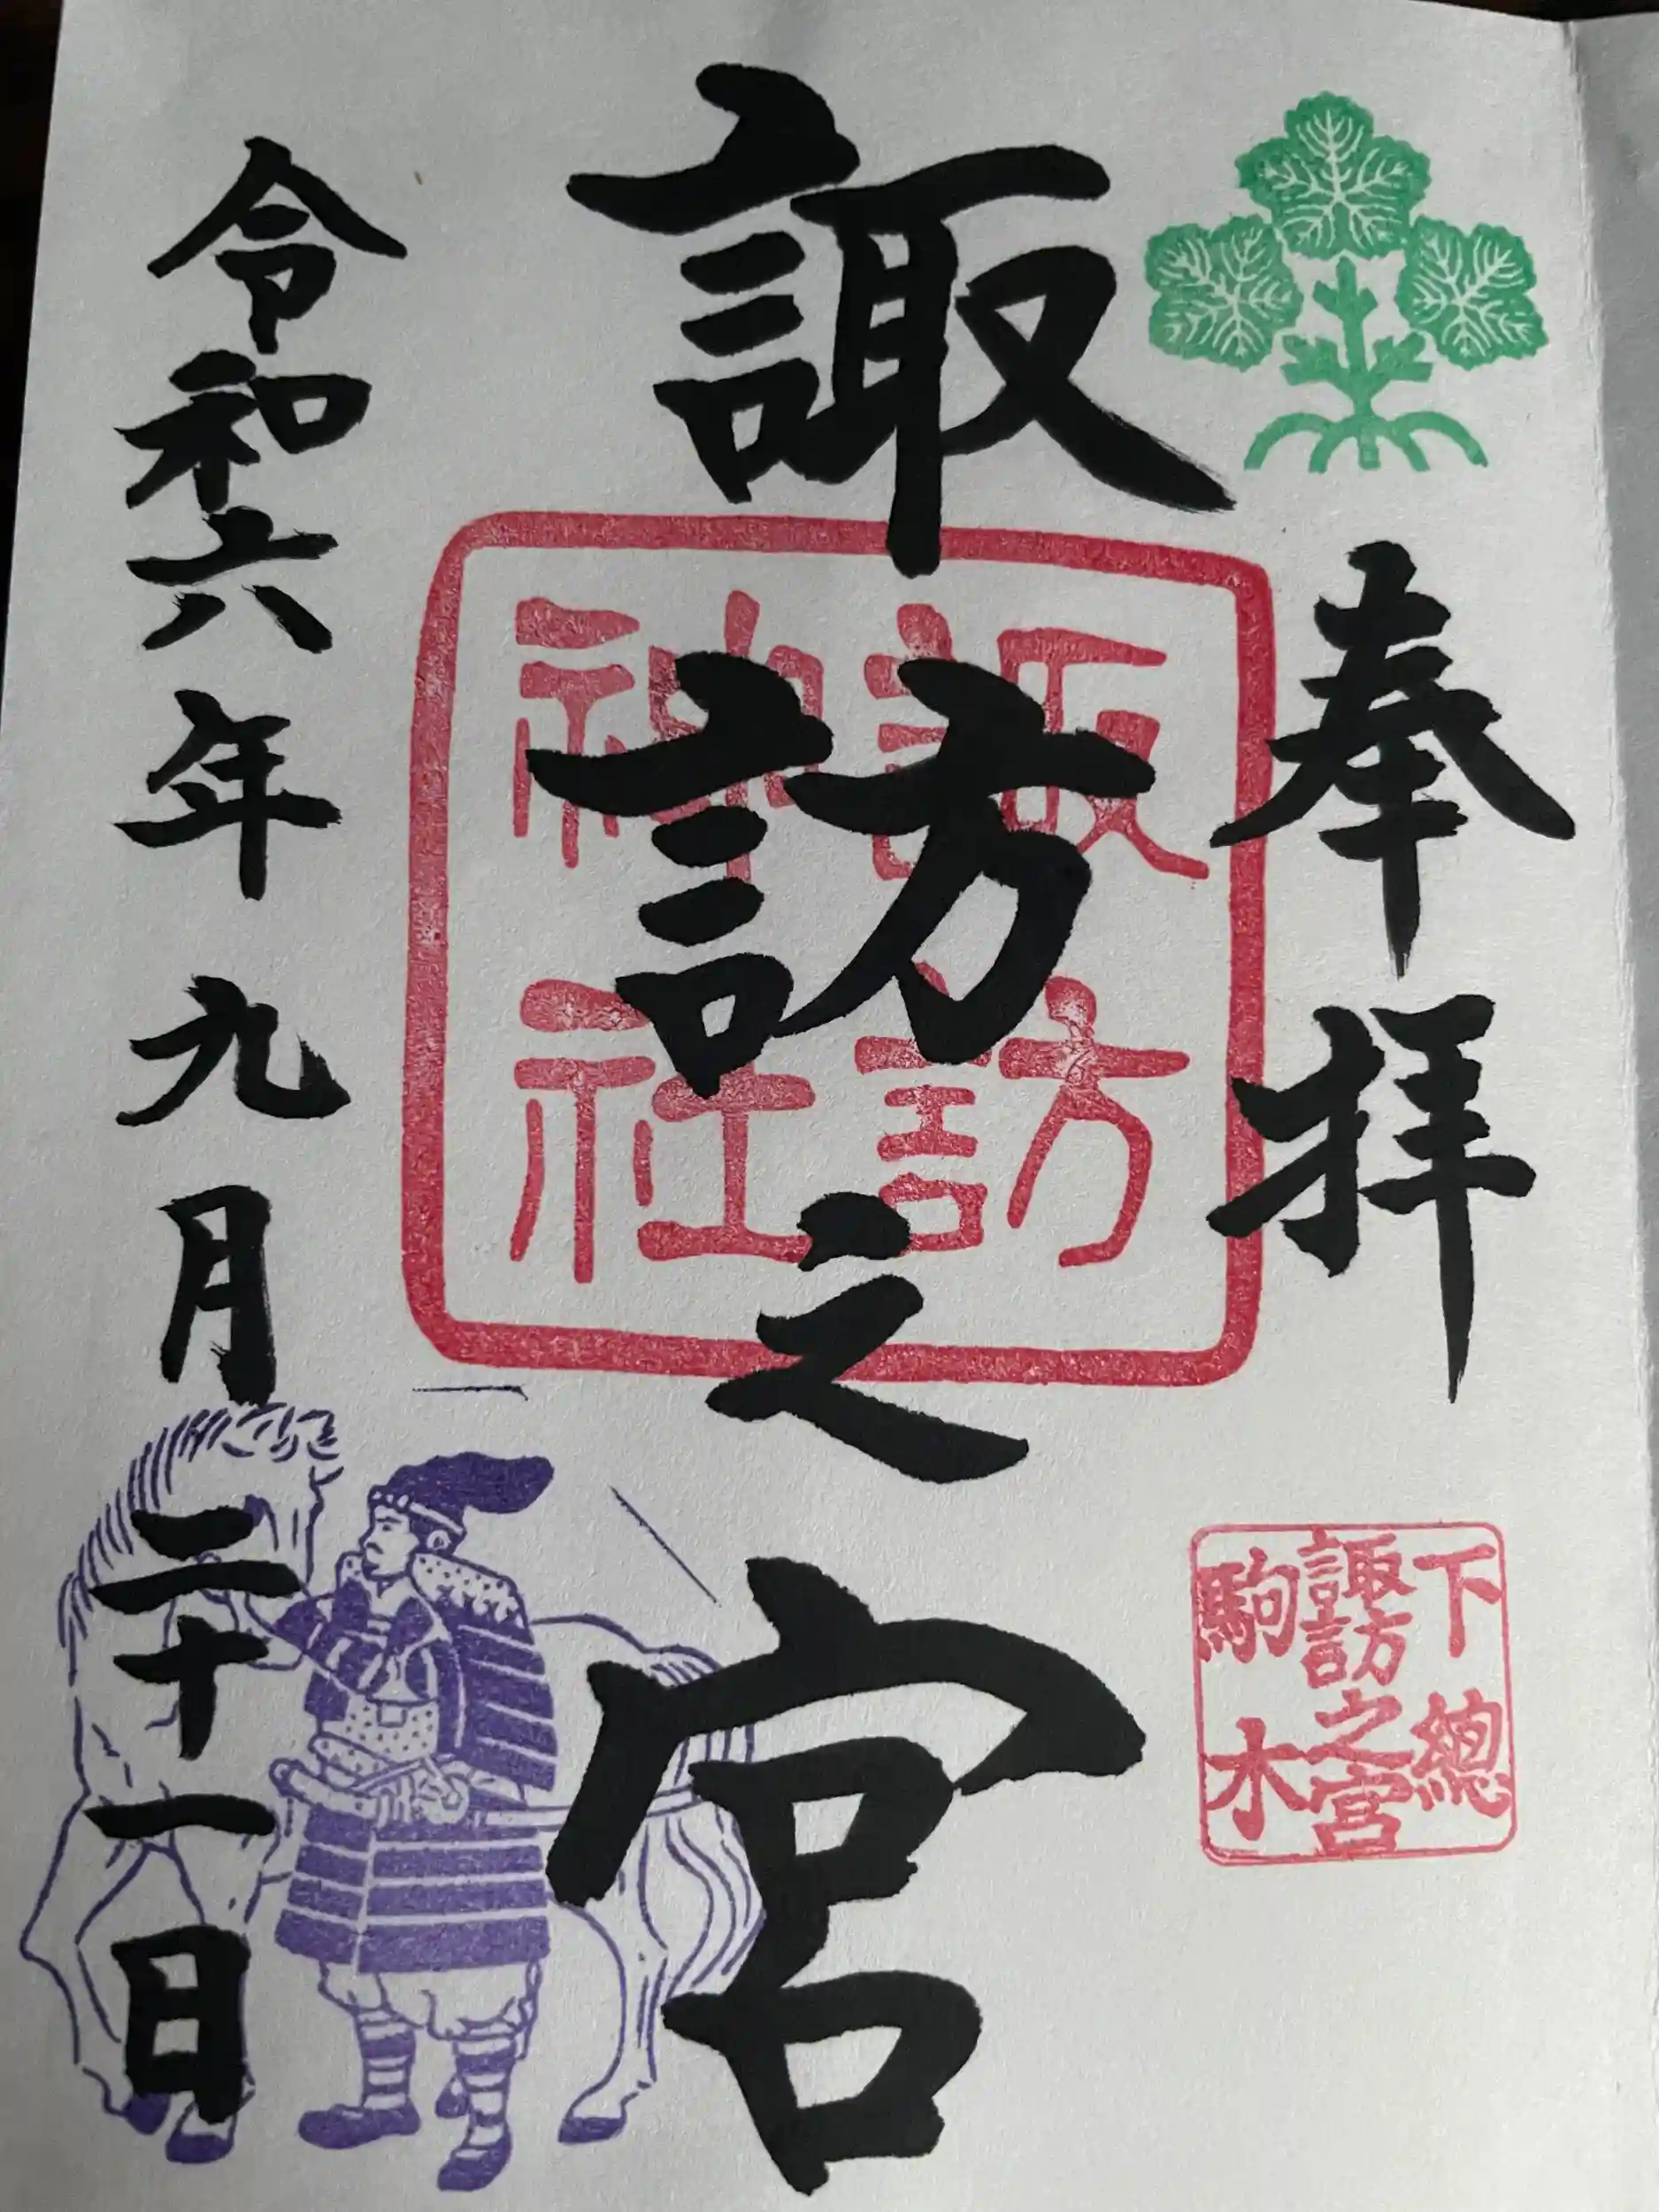 奉拝
下總
諏訪之宮
駒木
諏訪之宮
諏訪
神社
令和六年九月二十一日